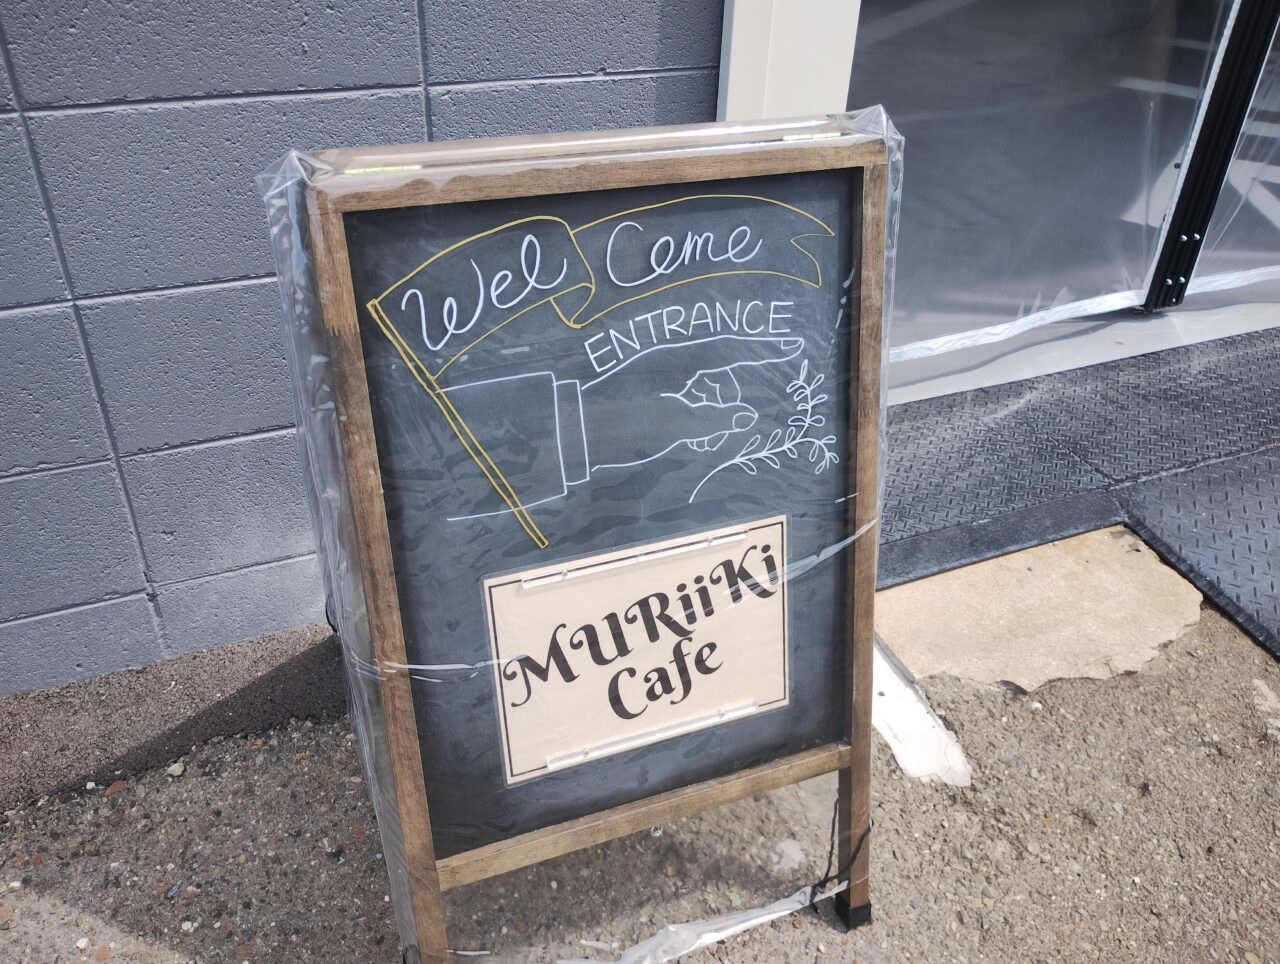 Wel Come
ENTRANCE
MURiiKi
Cafe